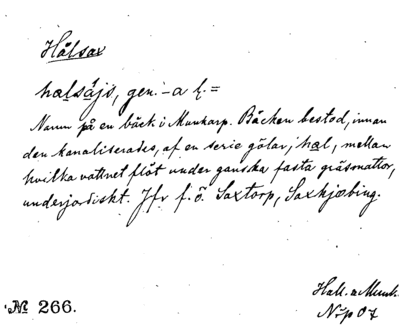 Hålsax
halsájs, gen. -a h. =
Namn på en bäck i Munkarp. Bäcken bestod, innan
den kanaliserades, af en serie gölar, hal, mellan
hvilka vattnet flöt under ganska fasta gräsmattor,
underjordiskt. Jfr f. ö. Saxtorp, Saxkjøbing.
Hall. o. Munk.
№ 266.
N-p 07